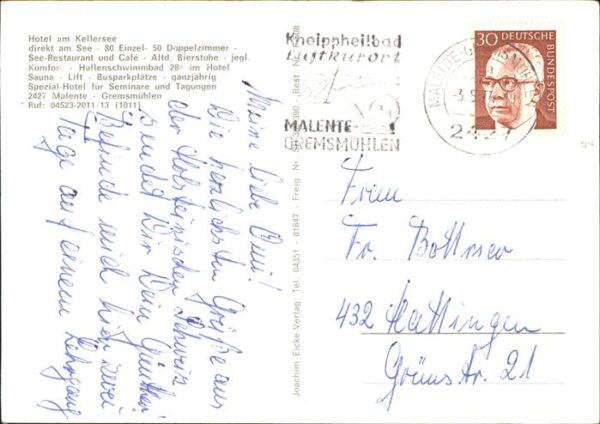 Hotel am Kellersee
direkt am See - 80 Einzel- 50 Doppelzimmer -
See-Restaurant und Café - Altd. Bierstube - jegl.
Komfort - Hallenschwimmbad 28° im Hotel
Sauna - Lift - Busparkplätze - ganzjährig
Spezial-Hotel für Seminare und Tagungen
2427 Malente - Gremsmühlen
Ruf: 04523-2011/13 (1011)
Meine liebe Omi!
Die herzlichsten Grüße aus
der Holsteinischen Schweiz
sendet Dir Dein Günther
Befinde mich hier zwei
Tage auf einem Lehrgang
Joachim Eicke-Verlag Tel. 04351 - 81847 - Freig. Nr.
Kneippheilbad
Luftkurort
MALENTE-
GREMSMÜHLEN
2427
30 DEUTSCHE
BUNDESPOST
Frau
Fr. Bottner
432 Hattingen
Grünstr. 21